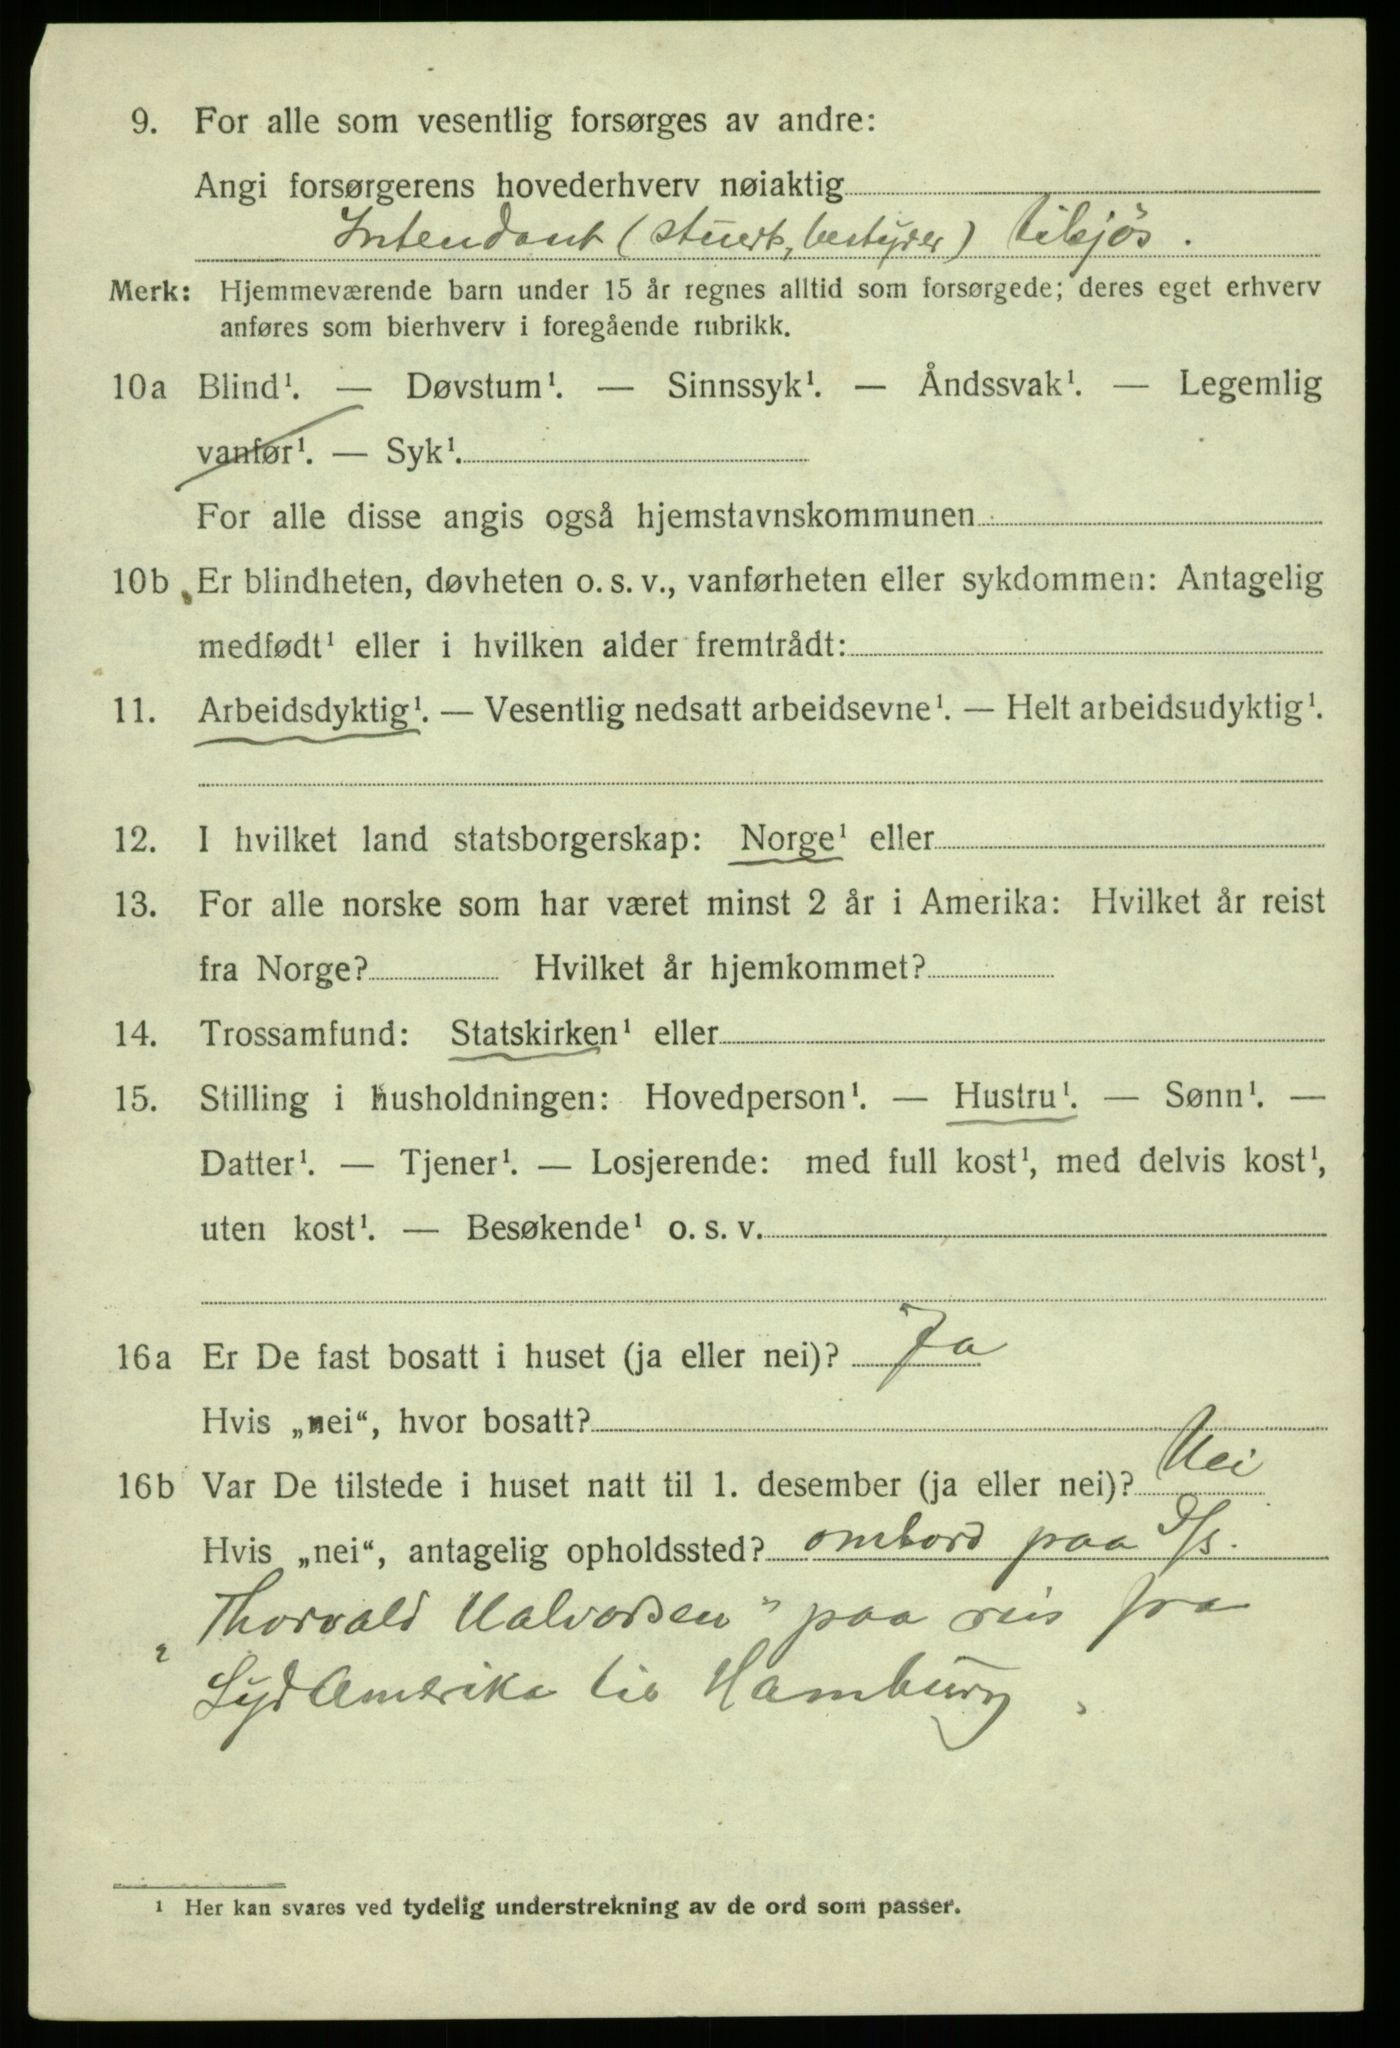 9. For alle som vesentlig forsørges av andre:
Angi forsørgerens hovederhverv nøiaktig
Intendant (stuert, bestyrer) tilsjøs.
Merk: Hjemmeværende barn under 15 år regnes alltid som forsørgede; deres eget erhverv
anføres som bierhverv i foregående rubrikk.
10a Blind¹. — Døvstum¹. — Sinnssyk¹. — Åndssvak¹. — Legemlig
vanfør¹. — Syk¹.
For alle disse angis også hjemstavnskommunen
10b Er blindheten, døvheten o. s. v., vanførheten eller sykdommen: Antagelig
medfødt¹ eller i hvilken alder fremtrådt:
11. Arbeidsdyktig¹. — Vesentlig nedsatt arbeidsevne¹. — Helt arbeidsudyktig¹.
12. I hvilket land statsborgerskap: Norge¹ eller
13. For alle norske som har været minst 2 år i Amerika: Hvilket år reist
fra Norge? Hvilket år hjemkommet?
14. Trossamfund: Statskirken¹ eller
15. Stilling i husholdningen: Hovedperson¹. — Hustru¹. — Sønn¹. —
Datter¹. — Tjener¹. — Losjerende: med full kost¹, med delvis kost¹,
uten kost¹. — Besøkende¹ o. s. v.
16a Er De fast bosatt i huset (ja eller nei)? Ja
Hvis „nei“, hvor bosatt?
16b Var De tilstede i huset natt til 1. desember (ja eller nei)? Nei
Hvis „nei“, antagelig opholdssted? ombord paa D/s.
„Thorvald Halvorsen" paa reis fra
SydAmerika til Hamburg.
¹ Her kan svares ved tydelig understrekning av de ord som passer.